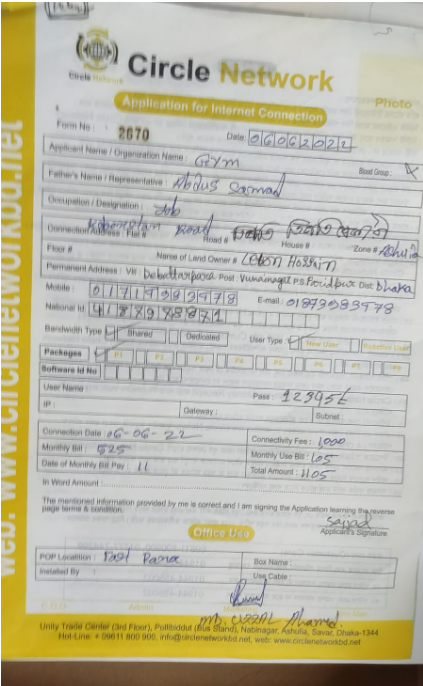 Circle Network
Circle Network
Application for Internet Connection
Photo
Form No : 2670 Date : 06062022
Applicant Name / Organization Name : Gym Blood Group :
Father's Name / Representative : Abdus Samad
Occupation / Designation : Job
Connection Address : Flat # Road Road # House # Zone # Ashulia
Floor # Name of Land Owner # Hossain
Permanent Address : Vill : Post : P.S : Dist : Dhaka
Mobile : E-mail :
National Id
Bandwidth Type Shared Dedicated User Type : New User Existing User
Packages P1 P2 P3 P4 P5 P6 P7 P8
Software Id No
User Name : Pass :
IP : Gateway : Subnet :
Connection Date : 06-06-22 Connectivity Fee : 1000
Monthly Bill : 525 Monthly Use Bill : 105
Date of Monthly Bill Pay : 11 Total Amount : 1105
In Word Amount :
The mentioned information provided by me is correct and I am signing the Application learning the reverse
page terms & condition.
sajjad
Applicant's Signature
Office Use
POP Location : Box Name :
Installed By : Use Cable :
MD. Ahamed.
Unity Trade Center (3rd Floor), Pollibiddut (Bus Stand), Nabinagar, Ashulia, Savar, Dhaka-1344
Hot-Line: + 09611 800 900, info@circlenetworkbd.net, web: www.circlenetworkbd.net
web: www.circlenetworkbd.net